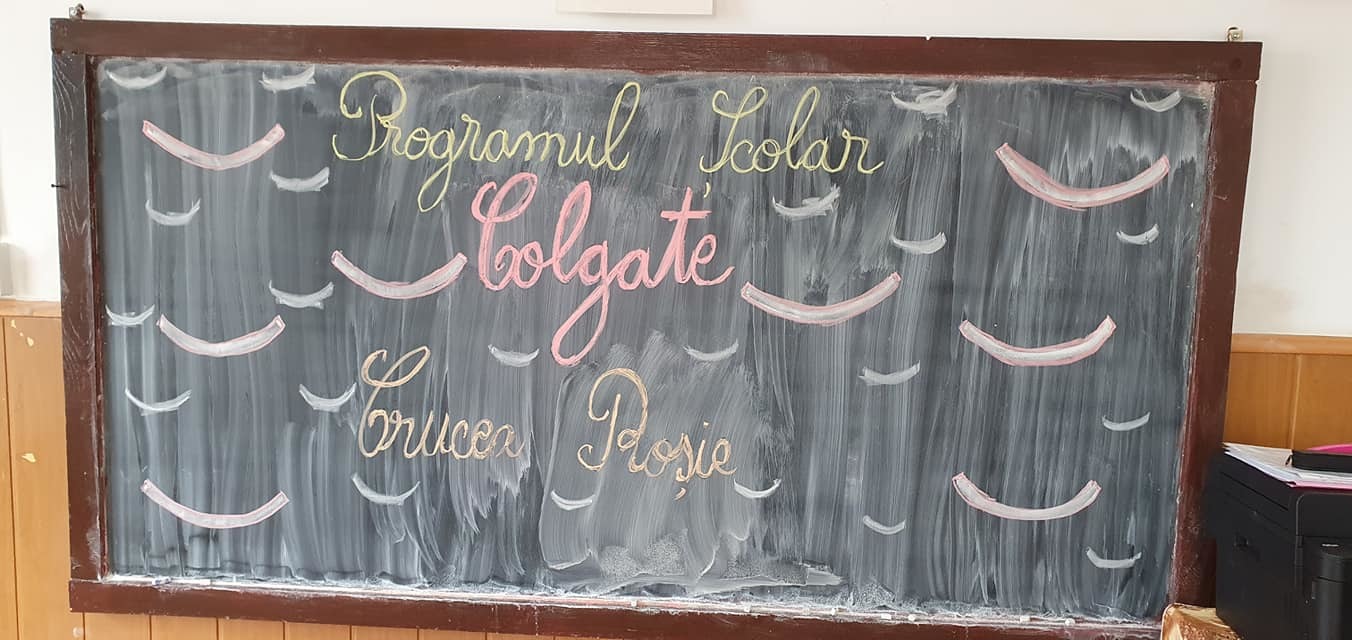 Programul Școlar
Colgate
Crucea Roșie